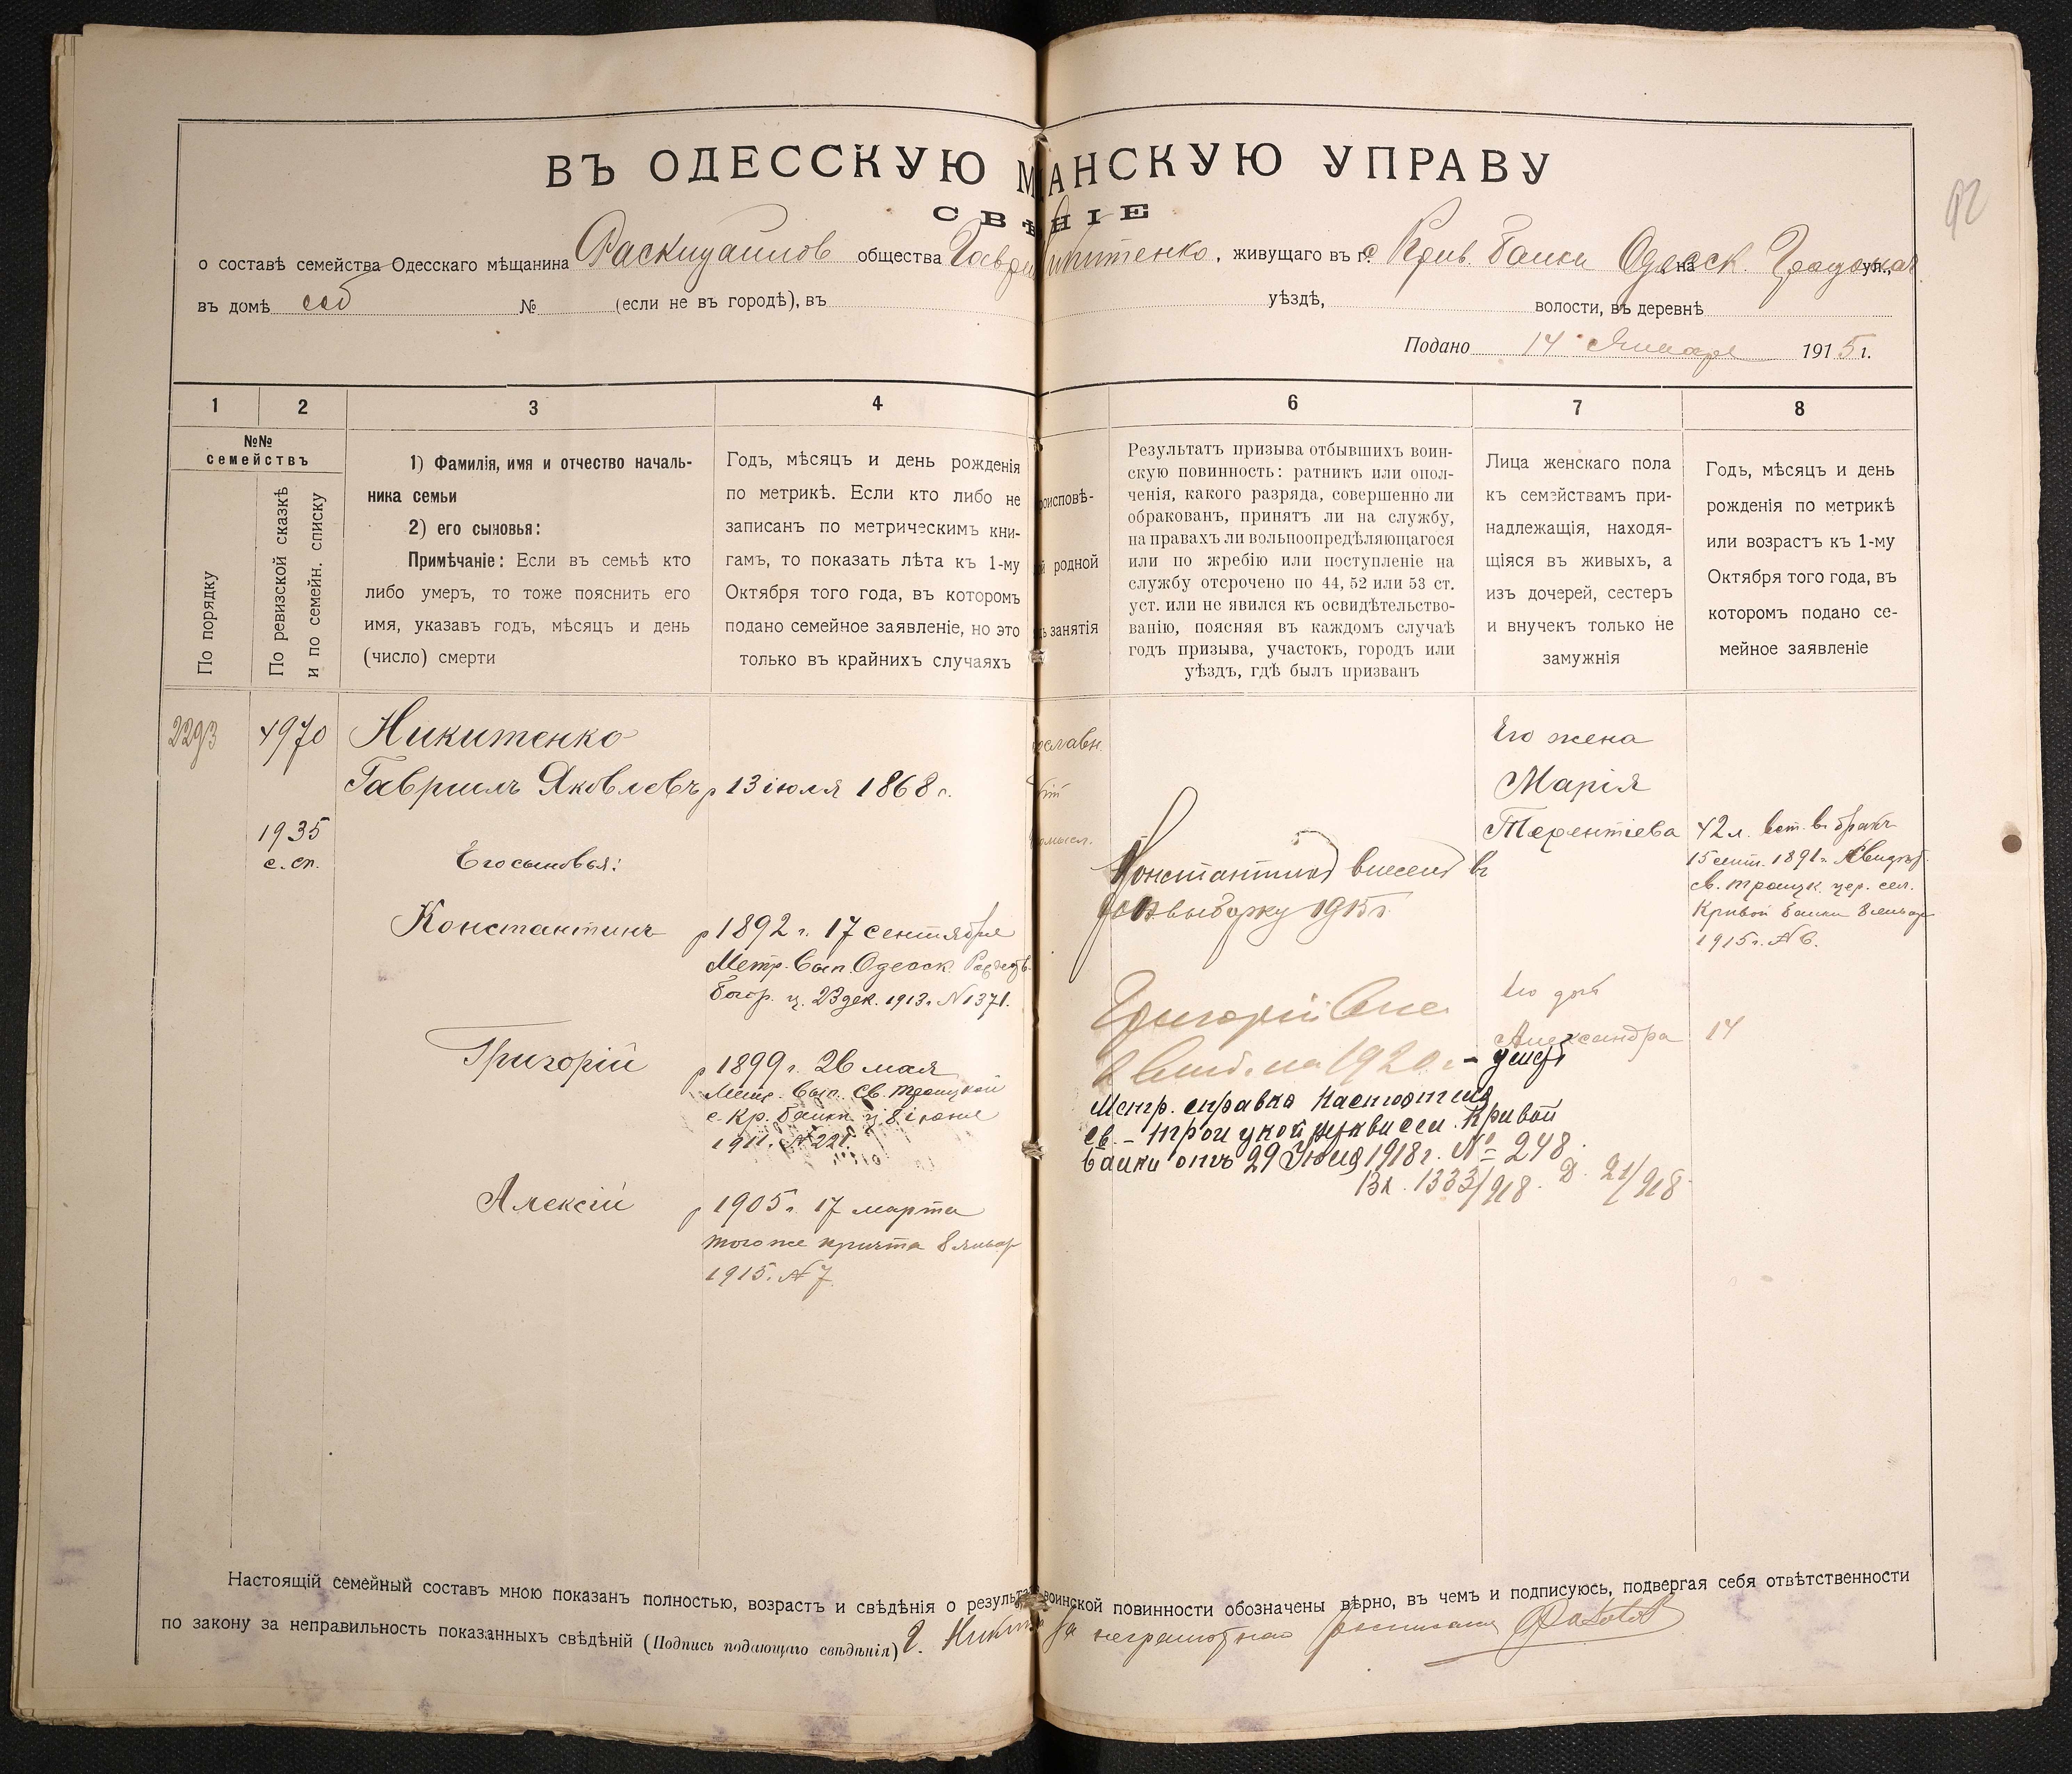 ВЪ ОДЕССКУЮ М АНСКУЮ УПРАВУ
СВѢ НІЕ
92
о составѣ семейства Одесскаго мѣщанина общества Гаври икитенко, живущаго въ г. с Крив. Балки Одесск. на ул.,
въ домѣ соб № (если не въ городѣ), въ уѣздѣ, волости, въ деревнѣ
Подано 14 Января 1915 г.
1 2 3 4 6 7 8
№№ семействъ
По порядку
По ревизской сказкѣ
и по семейн. списку
1) Фамилія, имя и отчество началь-
ника семьи
2) его сыновья:
Примѣчаніе: Если въ семьѣ кто
либо умеръ, то тоже пояснить его
имя, указавъ годъ, мѣсяцъ и день
(число) смерти
Годъ, мѣсяцъ и день рожденія
по метрикѣ. Если кто либо не
записанъ по метрическимъ кни-
гамъ, то показать лѣта къ 1-му
Октября того года, въ которомъ
подано семейное заявленіе, но это
только въ крайнихъ случаяхъ
роисповѣ-
й родной
ь занятія
Результатъ призыва отбывшихъ воин-
скую повинность: ратникъ или опол-
ченія, какого разряда, совершенно ли
обракованъ, принятъ ли на службу,
на правахъ ли вольноопредѣляющагося
или по жребію или поступленіе на
службу отсрочено по 44, 52 или 53 ст.
уст. или не явился къ освидѣтельство-
ванію, поясняя въ каждомъ случаѣ
годъ призыва, участокъ, городъ или
уѣздъ, гдѣ былъ призванъ
Лица женскаго пола
къ семействамъ при-
надлежащія, находя-
щіяся въ живыхъ, а
изъ дочерей, сестеръ
и внучекъ только не
замужнія
Годъ, мѣсяцъ и день
рожденія по метрикѣ
или возрастъ къ 1-му
Октября того года, въ
которомъ подано се-
мейное заявленіе
2293 4970 Никитенко
Гавриилъ Яковлевъ р 13 іюля 1868 г.
1935
с. сп.
Его сыновья:
Константинъ р 1892 г. 17 сентября
Метр. Вып. Одесск. Рождеств.
Богор. ц. 23 дек. 1913 г. N 1371.
Григорій р 1899 г. 26 мая
Метр. Вып. Св. Троицкой
с. Кр. Балки ц. 8 іюня
1911 г. N 221.
Алексій р 1905 г. 17 марта
того же причта 8 январ
1915 г. N 7.
ославн.
Константинъ внесенъ въ
выборку 1915 г.
Григорій
на 1920 г. – умеръ
Метр. справка настоятеля
св. – троицкой церкви сел. Кривой
балки отъ 29 Июня 1918 г. № 248.
Вх. 1333/918. Д. 21/918
Его жена
Марія
Терентіева 42 л. вст. въ бракъ
15 сент. 1891 г.
св. троицк. цер. сел.
Кривой балки 8 январ
1915 г. N 6.
Его доч
Александра 14
Настоящій семейный составъ мною показанъ полностью, возрастъ и свѣдѣнія о результа воинской повинности обозначены вѣрно, въ чемъ и подписуюсь, подвергая себя отвѣтственности
по закону за неправильность показанныхъ свѣдѣній (Подпись подающаго свѣдѣнія) Г. Никит за неграмотнаго